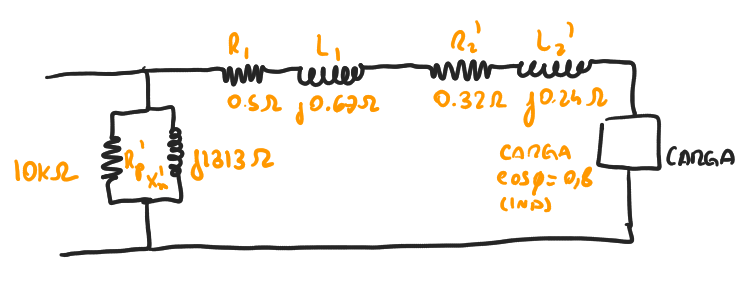 R₁ L₁ R₂' L₂'
0.5Ω j0.62Ω 0.32Ω j0.24Ω
10KΩ Rₚ' Xₘ' j1313Ω
CARGA
cosφ=0,8
(IND)
CARGA